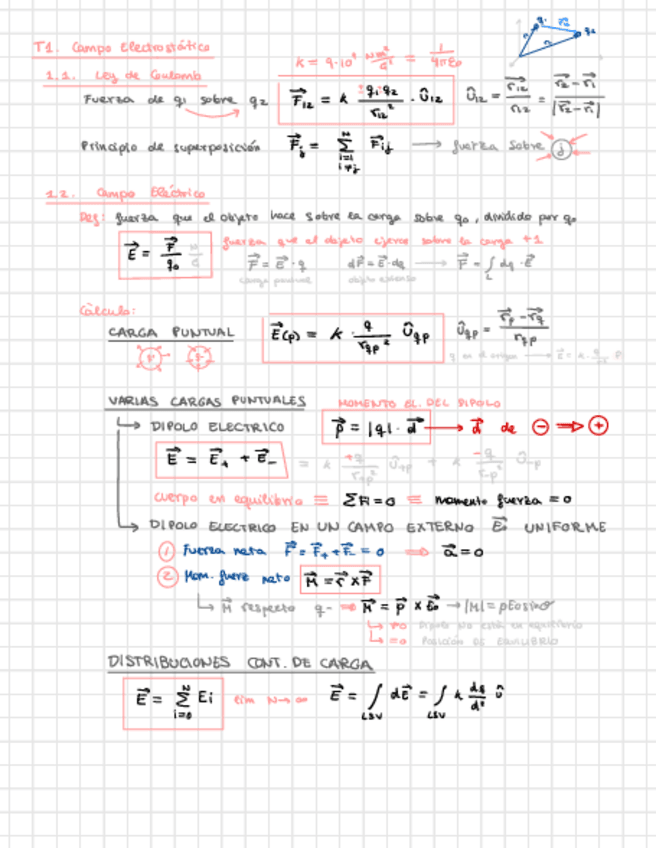 T1. Campo Electrostático
K = 9·10⁹ Nm²/q² = 1/4πε₀
1.1. Ley de Coulomb
Fuerza de q₁ sobre q₂ F⃗₁₂ = K q₁·q₂/r₁₂² · Û₁₂ Û₁₂ = r⃗₁₂/r₁₂ = r⃗₂-r⃗₁/|r⃗₂-r⃗₁|
Principio de superposición F⃗ⱼ = Σ F⃗ᵢⱼ → fuerza sobre j
N i=1 i≠j
1.2. Campo Eléctrico
Def: fuerza que el objeto hace sobre la carga sobre q₀, dividido por q₀
E⃗ = F⃗/q₀ N/C fuerza que el objeto ejerce sobre la carga +1
F⃗ = E⃗·q dF⃗ = E⃗·dq → F⃗ = ∫_L dq·E⃗
carga puntual objeto extenso
Cálculo:
CARGA PUNTUAL E⃗(p) = K · q/r_qp² Û_qp Û_qp = r⃗p-r⃗q/r_qp
q en el origen →
VARIAS CARGAS PUNTUALES MOMENTO EL. DEL DIPOLO
↳ DIPOLO ELECTRICO p⃗ = |q|·d⃗ → d⃗ de ⊖ ⇒ ⊕
E⃗ = E⃗₊ + E⃗₋ = K +q/r₊p² Û₊p + K -q/r₋p² Û₋p
cuerpo en equilibrio ≡ ΣFi=0 ≡ momento fuerza = 0
↳ DIPOLO ELECTRICO EN UN CAMPO EXTERNO E⃗₀ UNIFORME
① Fuerza neta F⃗ = F⃗₊ + F⃗₋ = 0 ⇒ a⃗ = 0
② Mom. fuerz neto M⃗ = r⃗ × F⃗
↳ M⃗ respecto q- ⇒ M⃗ = p⃗ × E⃗₀ → |M| = pE₀sinθ
↳ ≠0 Dipolo no está en equilibrio
↳ =0 POSICIÓN DE EQUILIBRIO
DISTRIBUCIONES CONT. DE CARGA
E⃗ = Σ Ei lim N→∞ E⃗ = ∫ dE⃗ = ∫ K dq/d² Û
N i=0 LSV LSV